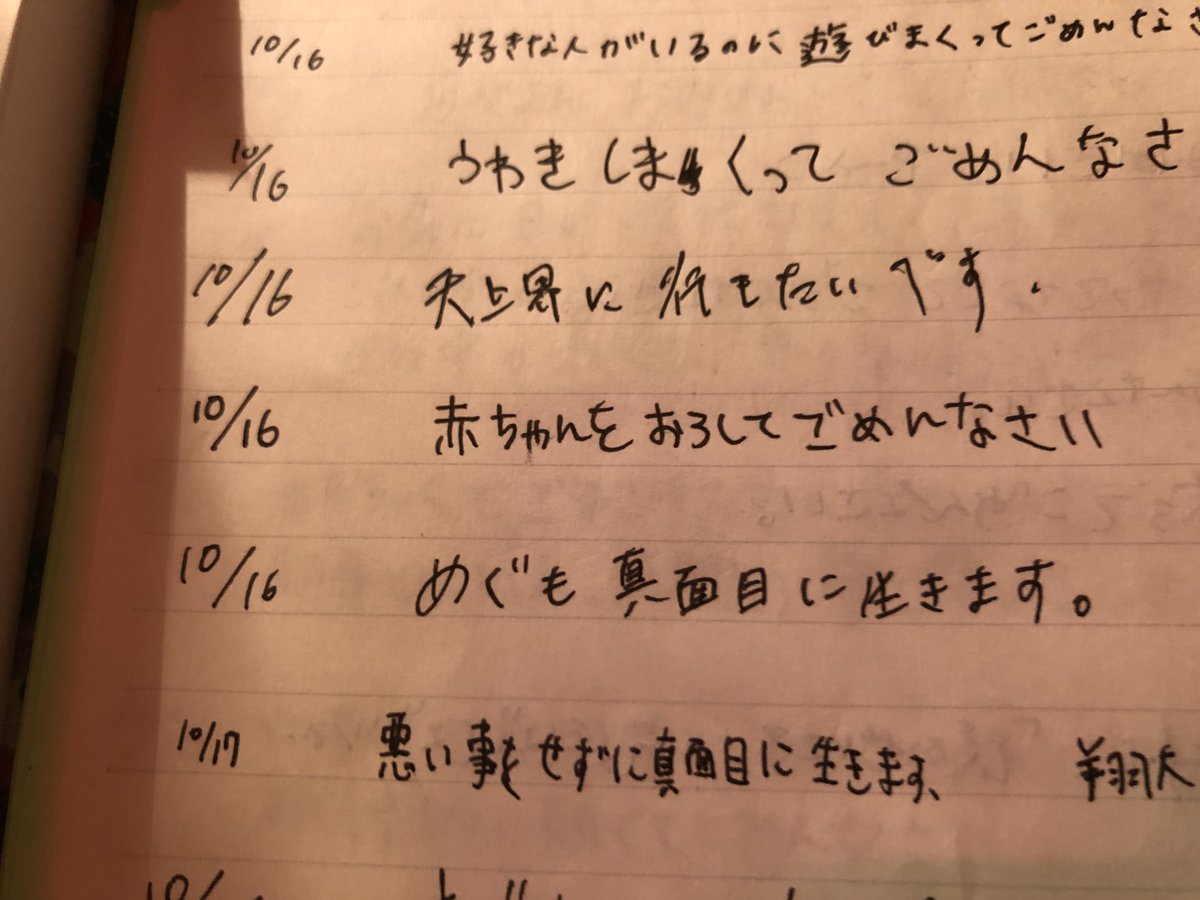 10/16 好きな人がいるのに遊びまくってごめんなさ
10/16 うわきしまくって ごめんなさ
10/16 天上界に行きたいです.
10/16 赤ちゃんをおろしてごめんなさい
10/16 めぐも 真面目に生きます。
10/17 悪い事をせずに真面目に生きます、 翔大
10/